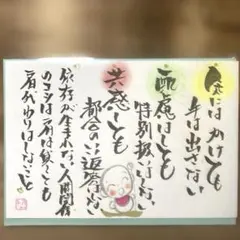 気にはかけても
手は出さない
配慮はしても
特別扱いはしない
共感しても
都合いい返答しない
依存が生まれない人間関係
のコツは肩は貸しても
肩代わりはしないこと